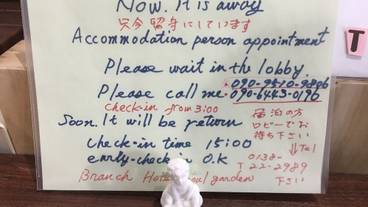 Now. It is away
只今留守にしています
Accommodation person appointment
Please wait in the lobby.
Please call me. 090-9510-9886
090-6443-0196
check-in from 3:00
宿泊の方
ロビーでお
待ち下さい
Soon. It will be return
↓Tel
check-in time 15:00
0138-
early-check-in O.K
T 22-2989
Branch Hotel Soul garden
下さい
T